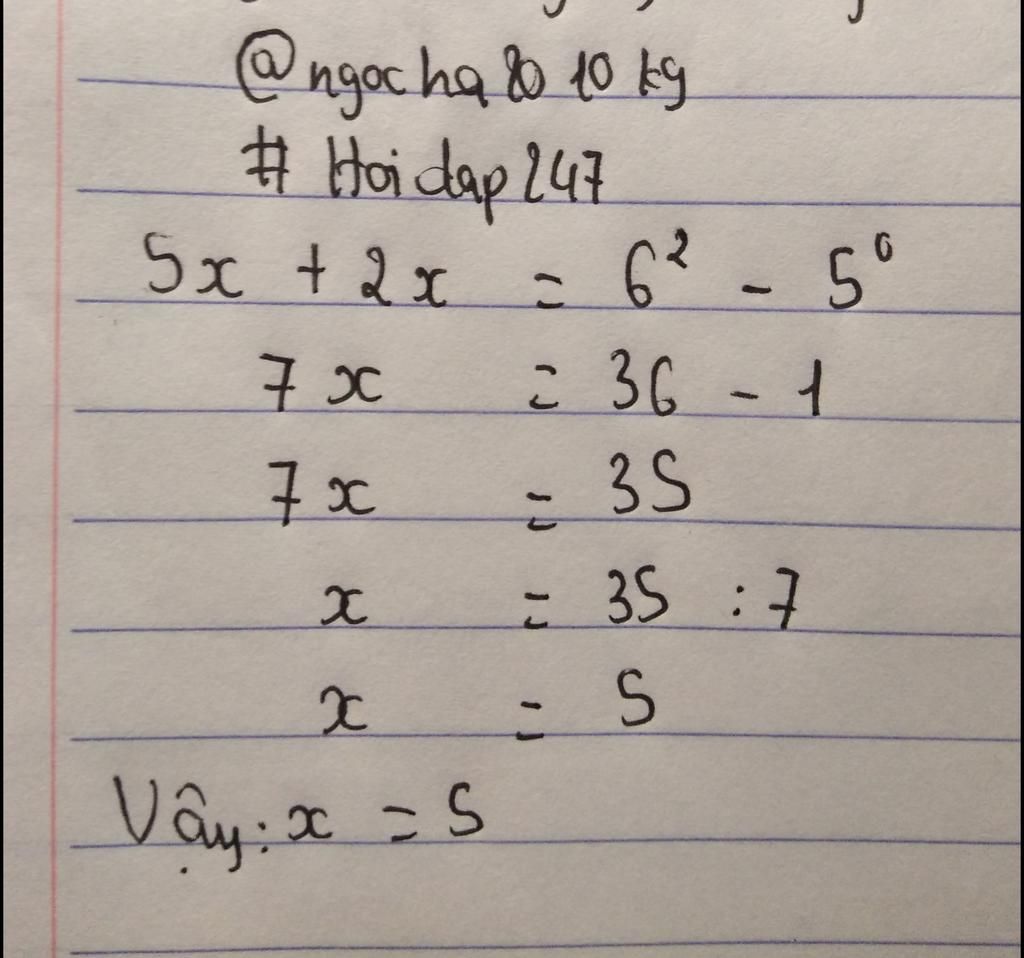 @ngocha2010kg
# Hoidap247
5x + 2x = 6² - 5⁰
7x = 36 - 1
7x = 35
x = 35 : 7
x = 5
Vậy: x = 5